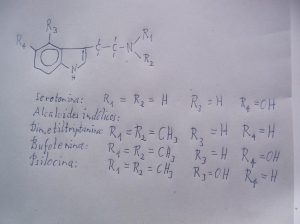 R₃
R₄
C - C - N
R₁
R₂
N
H
Serotonina: R₁ = R₂ = H R₃ = H R₄ = OH
Alcaloides indólicos:
Dimetiltriptamina: R₁ = R₂ = CH₃ R₃ = H R₄ = H
Bufotenina: R₁ = R₂ = CH₃ R₃ = H R₄ = OH
Psilocina: R₁ = R₂ = CH₃ R₃ = OH R₄ = H